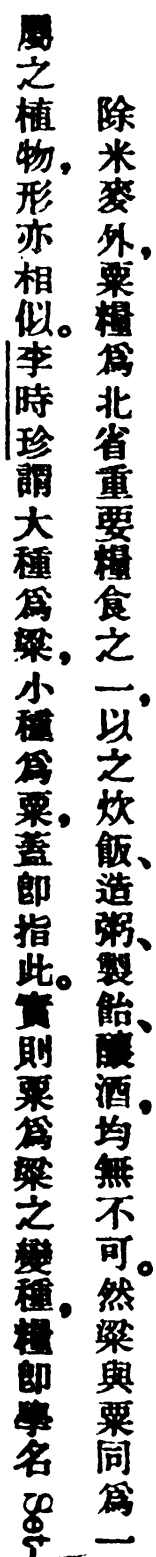 除米麥外，粟糧爲北省重要糧食之一，以之炊飯、造粥、製飴、釀酒，均無不可。然粱與粟同爲一
屬之植物，形亦相似。李時珍謂大種爲粱，小種爲粟，蓋卽指此。實則粟爲粱之變種，糧卽學名 Set